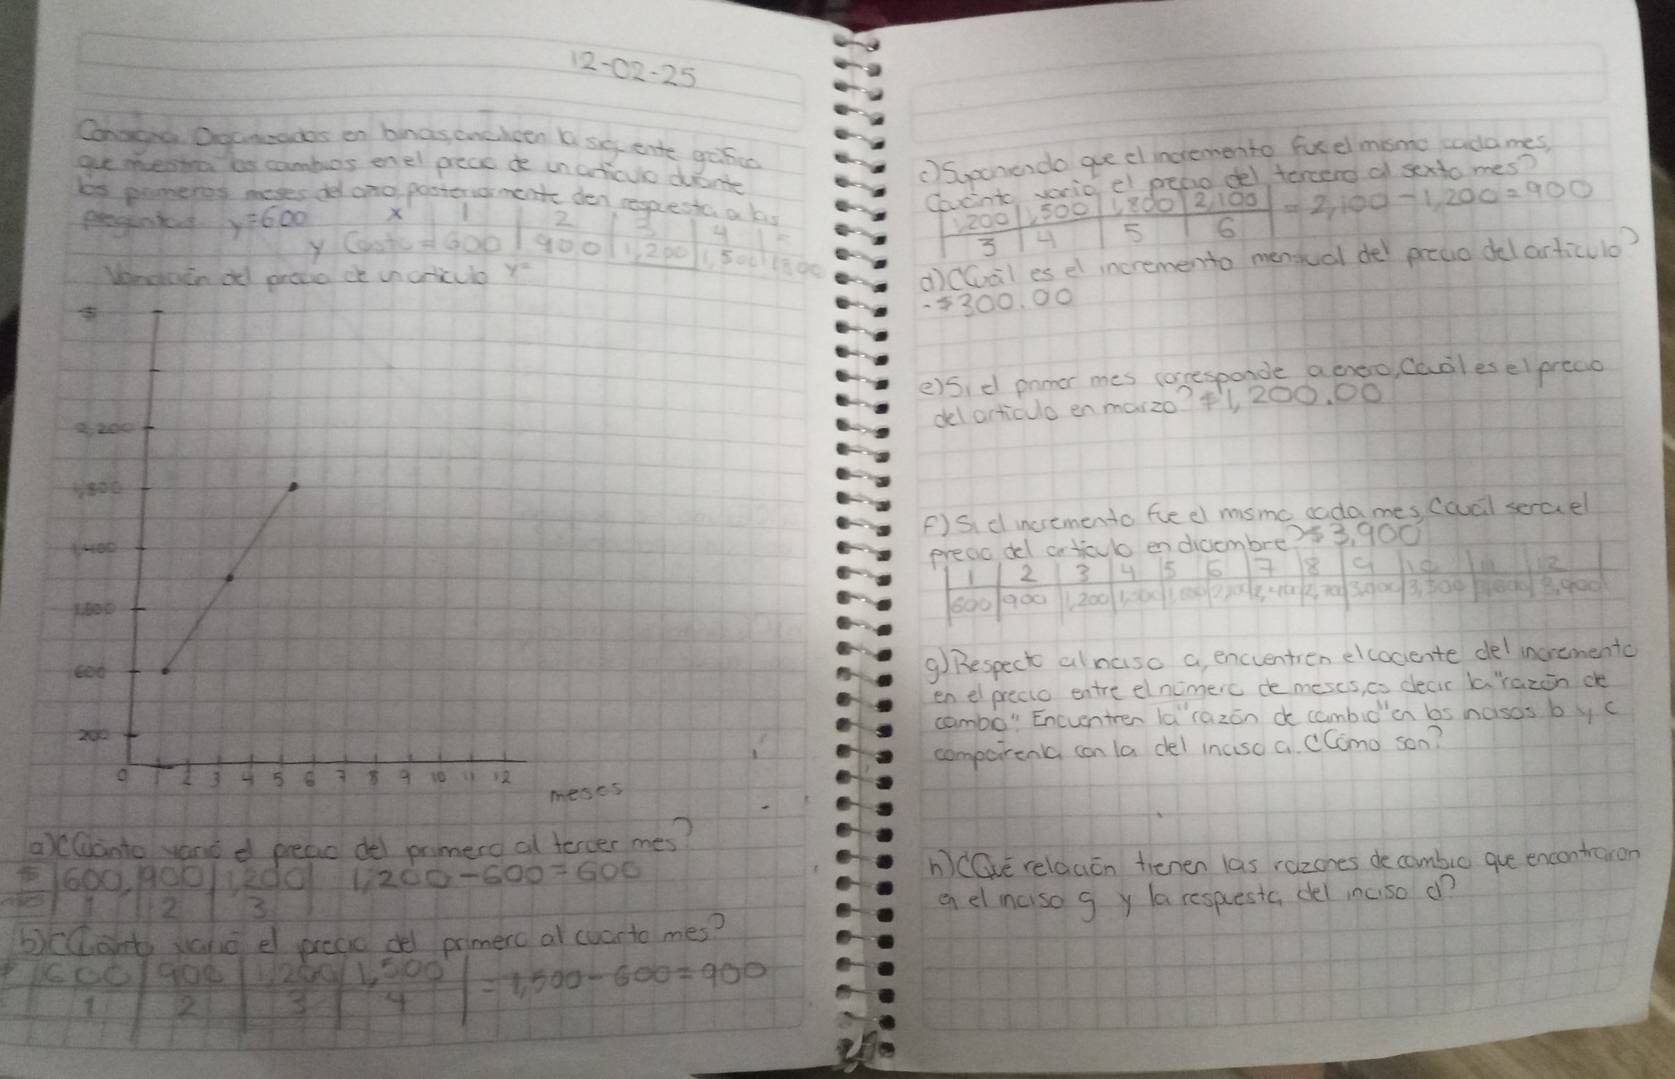 12-02-25
Consigna Organizados en binas, analicen la siguiente gráfica
que muestra los cambios en el precio de un artículo durante
los primeros meses del año, posteriormente den respuesta a las
preguntas y=600 x 1 2 3 4
y Costo = 600 | 900 | 1,200 | 1,500 | 1800
Variación del precio de un artículo y=
$
2,200
1,800
1400
600
200
0 1 2 3 4 5 6 7 8 9 10 11 12
meses
a) ¿Cuánto varió el precio del primero al tercer mes?
$ | 600, 900 | 1,200 | 1,200-600=600
1 2 3
b) ¿Cuánto varió el precio del primero al cuarto mes?
$ | 600 | 900 | 1,200 | 1,500 | = 1,500-600=900
1 | 2 | 3 | 4
c) Suponiendo que el incremento fue el mismo cada mes,
¿Cuánto varió el precio del tercero al sexto mes?
| 1,200 | 1,500 | 1,800 | 2,100 | = 2,100-1,200=900
3 | 4 | 5 | 6
d) ¿Cuál es el incremento mensual del precio del artículo?
-$300.00
e) Si el primer mes corresponde a enero, ¿Cuál es el precio
del artículo en marzo? $1,200.00
f) Si el incremento fue el mismo cada mes, ¿Cuál será el
precio del artículo en diciembre? $3,900
| 1 | 2 | 3 | 4 | 5 | 6 | 7 | 8 | 9 | 10 | 11 | 12
| 600 | 900 | 1,200 | 3,900
g) Respecto al inciso a, encuentren el cociente del incremento
en el precio entre el número de meses, es decir la "razón de
cambio". Encuentren la "razón de cambio" en los incisos b y c
comparenla con la del inciso a. ¿Cómo son?
h) ¿Qué relación tienen las razones de cambio que encontraron
en el inciso g y la respuesta del inciso d?